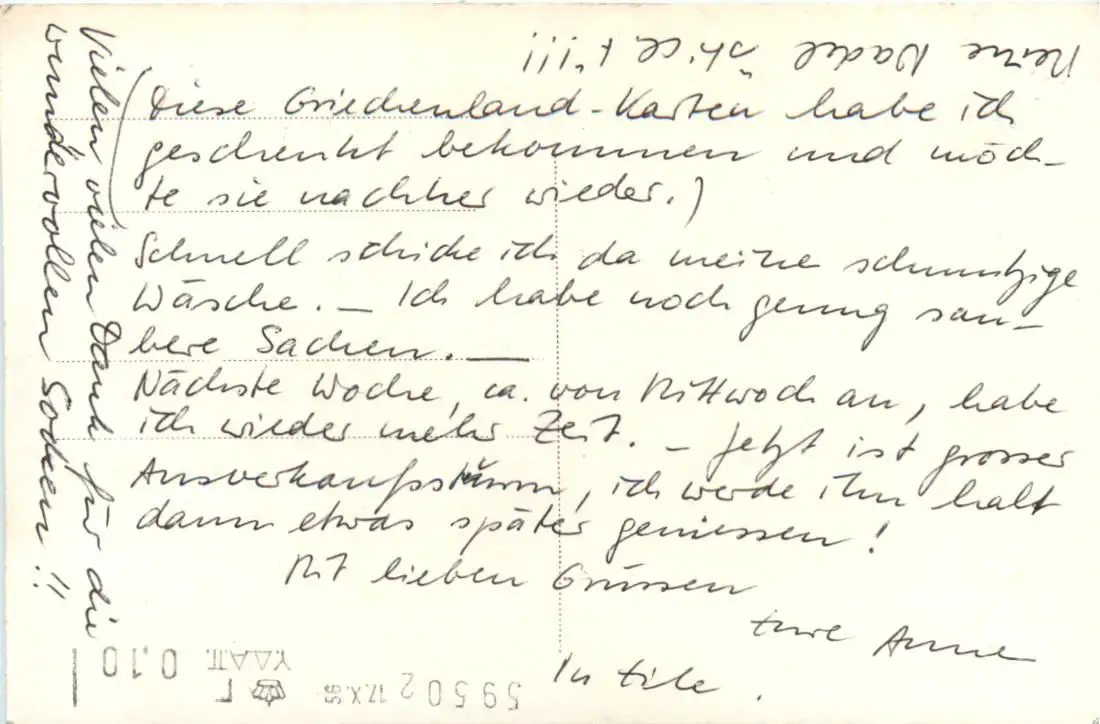 Meine Nadel !!!
(Diese Griechenland-Karten habe ich
geschenkt bekommen und möch-
te sie nachher wieder.)
Schnell schicke ich da meine schmutzige
Wäsche. — Ich habe noch genug sau-
bere Sachen. —
Nächste Woche, ca. von Mittwoch an, habe
ich wieder mehr Zeit. — Jetzt ist grosser
Ausverkaufssturm, ich werde ihn halt
dann etwas später geniessen!
Mit lieben Grüssen
Eure Anne
In Eile.
Vielen vielen Dank für die
wundervollen Socken!!
0,10
59502